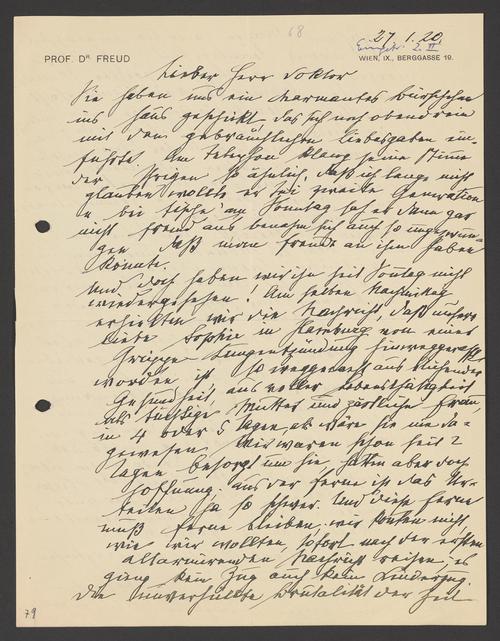 68
27.1.20
PROF. DR FREUD
WIEN, IX., BERGGASSE 19.
Lieber Herr Doktor
Sie haben uns ein charmantes Bürschchen
ins Haus geschickt, das sich noch obendrein
mit den gebräuchlichen Liebesgaben ein-
führte. Am Telephon klang seine Stimme
der Ihrigen so ähnlich, daß ich lange nicht
glauben wollte es sei zweite Generation
u. bei Tische am Sonntag sah er dann gar
nicht fremd aus benahm sich auch so ungezwun-
gen, daß man Freude an ihm haben
könnte.
Und doch haben wir ihn seit Sonntag nicht
wiedergesehen! Am selben Nachmittag
erhielten wir die Nachricht, daß unsere
liebe Sophie in Hamburg von einer
Grippe Lungenentzündung hinweggerafft
worden ist, so weggerafft aus blühender
Gesundheit, aus voller Lebensthätigkeit
als tüchtige Mutter und zärtliche Frau,
in 4 oder 5 Tagen, als wäre sie nie da-
gewesen. Wir waren schon seit 2
Tagen besorgt um sie, hatten aber doch
Hoffnung; aus der Ferne ist das Ur-
teilen ja so schwer. Und diese Ferne
muß Ferne bleiben; wir konnten nicht,
wie wir wollten, sofort nach der ersten
alarmirenden Nachricht reisen, es
gieng kein Zug, auch kein
Die unverhüllte Brutalität der Zeit
79